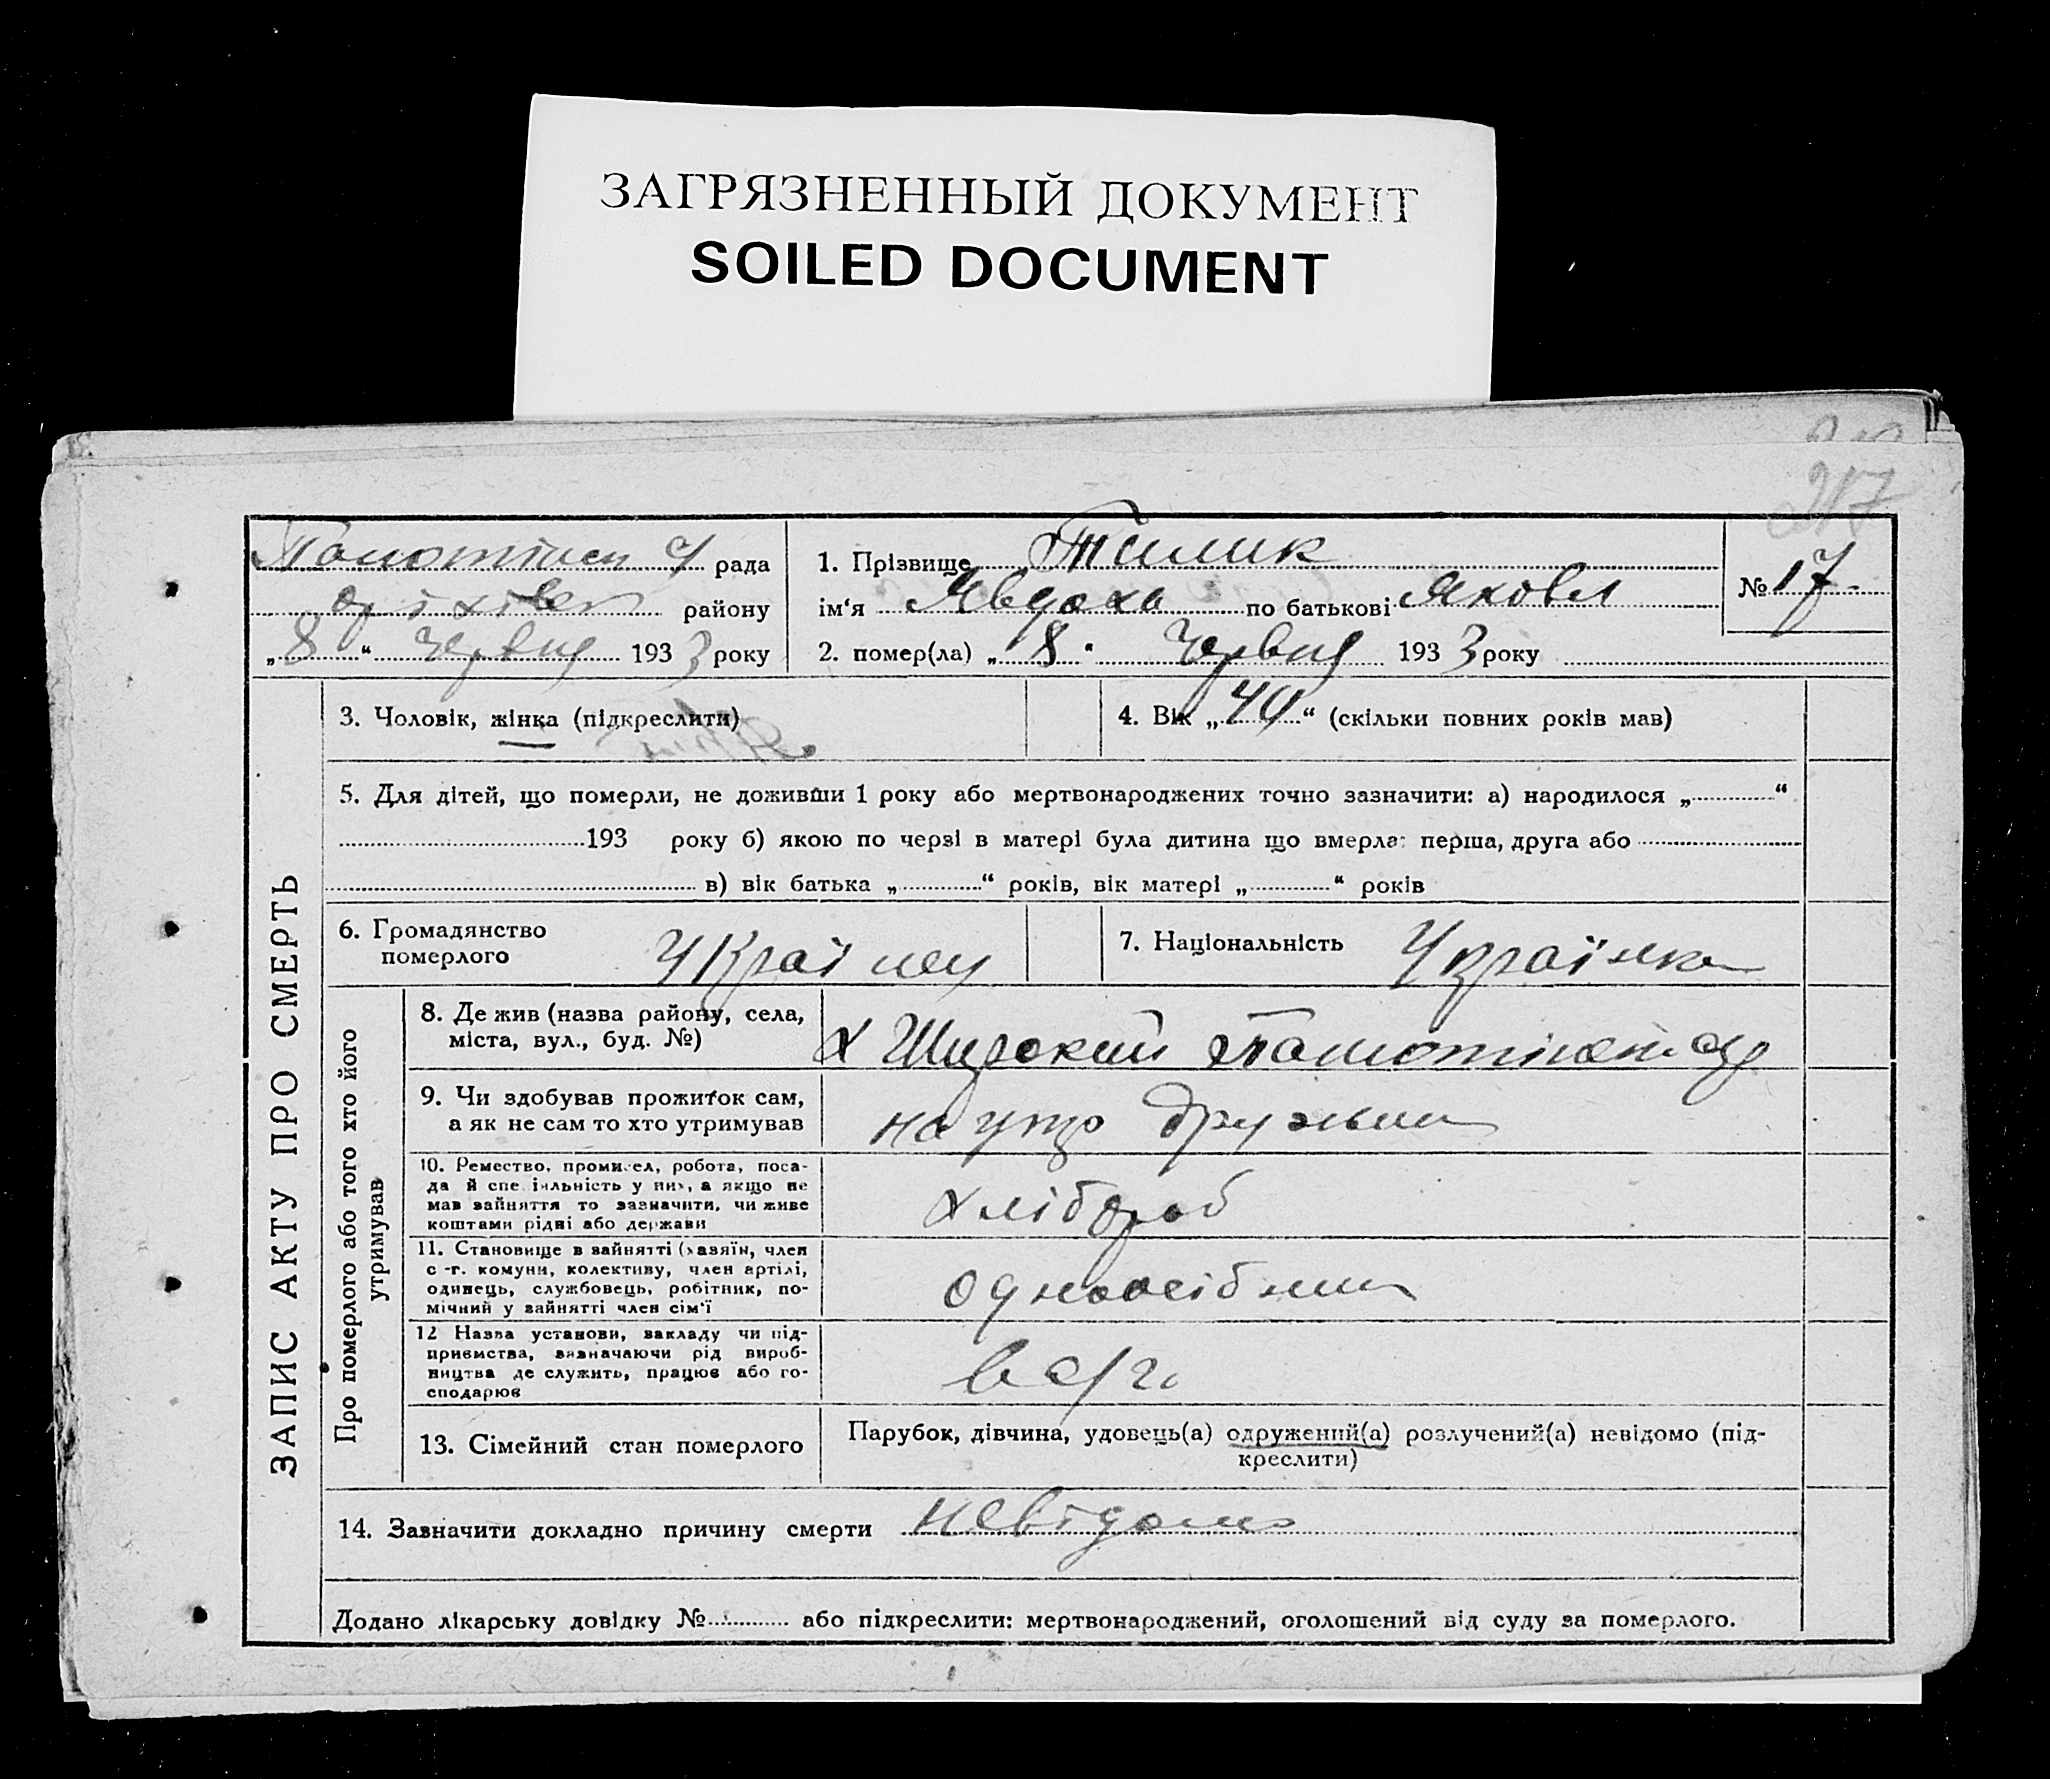 ЗАГРЯЗНЕННЫЙ ДОКУМЕНТ
SOILED DOCUMENT
217
рада
району
„8“ Червня 1933 року
1. Прізвище Тилик
ім‘я Явдоха по батькові Яковл
2. помер(ла) „8“ Червня 1933 року
№ 17
ЗАПИС АКТУ ПРО СМЕРТЬ
3. Чоловік, жінка (підкреслити)
4. Вік „40“ (скільки повних років мав)
5. Для дітей, що померли, не доживши 1 року або мертвонароджених точно зазначити: а) народилося „ “
193 року б) якою по черзі в матері була дитина що вмерла: перша, друга або
в) вік батька „ “ років, вік матері „ “ років
6. Громадянство
померлого
7. Національність Українка
Про померлого або того хто його
утримував
8. Де жив (назва району, села,
міста, вул., буд. №)
х Широкий
9. Чи здобував прожиток сам,
а як не сам то хто утримував
10. Ремество, промисел, робота, поса-
да й спеціяльність у них, а якщо не
мав зайняття то зазначити, чи живе
коштами рідні або держави
хлібороб
11. Становище в зайнятті (хазяїн, член
с-г. комуни, колективу, член артілі,
одинець, службовець, робітник, по-
мічний у зайнятті член сім‘ї
одноосібник
12 Назва установи, закладу чи під-
приємства, зазначаючи рід вироб-
ництва де служить, працює або го-
сподарює
в с/г.
13. Сімейний стан померлого
Парубок, дівчина, удовець(а) одружений(а) розлучений(а) невідомо (під-
креслити)
14. Зазначити докладно причину смерти невідомо
Додано лікарську довідку № або підкреслити: мертвонароджений, оголошений від суду за померлого.